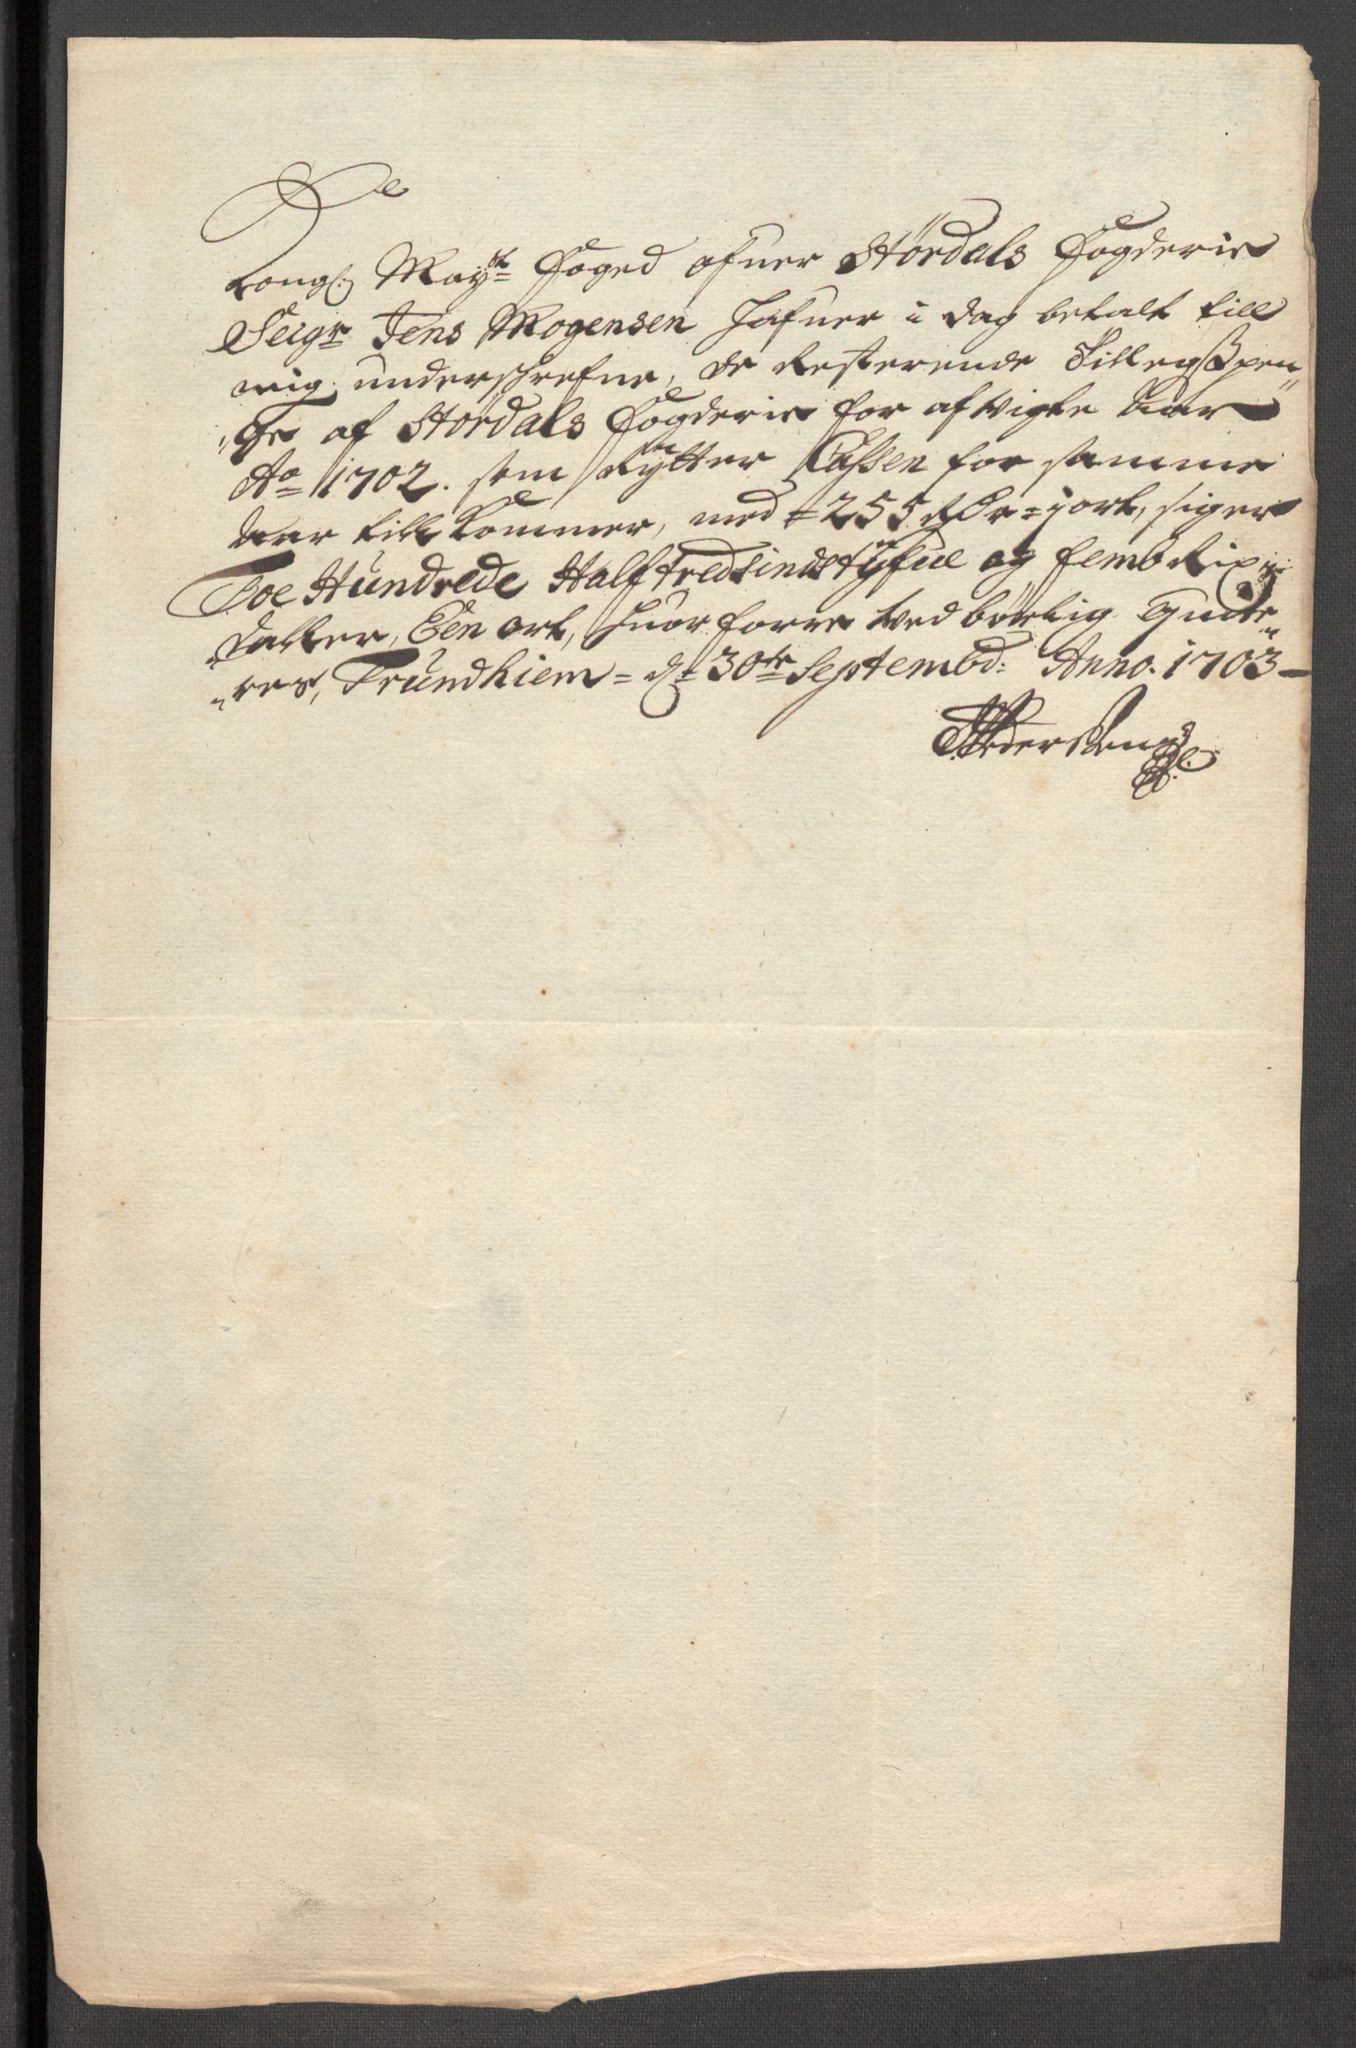 Kongl: May:tz Foged ofuer Stördals Fogderie
Seigr Jens Mogensen hafuer i dag betalt till
mig underschrefne, de Resterende Tillegs Spen„
„ge af Stördals Fogderie for afvigte Aar
Ao 1702. som Rytter Cassen for samme
Aar till Kommer, med = 255 Rdr = 1 ort, siger
Toe Hundrede Halftredsindstyfue og femb Rix„
„daller, Een ort, huor forre ved börlig Quite„
„res, Trundhiem = d: 30te Septembd: Anno. 1703 –